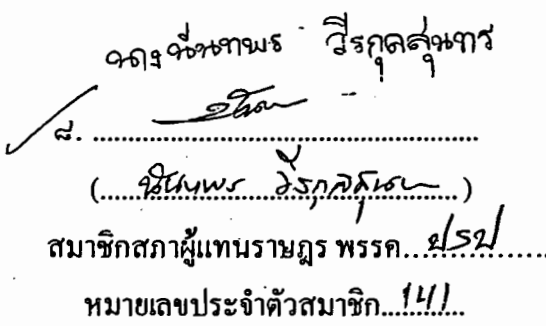 นางนันทพร วีรกุลสุนทร
๘. ........................................
(.....นันทพร วีรกุลสุนทร.....)
สมาชิกสภาผู้แทนราษฎร พรรค....ปชป....
หมายเลขประจำตัวสมาชิก....141....